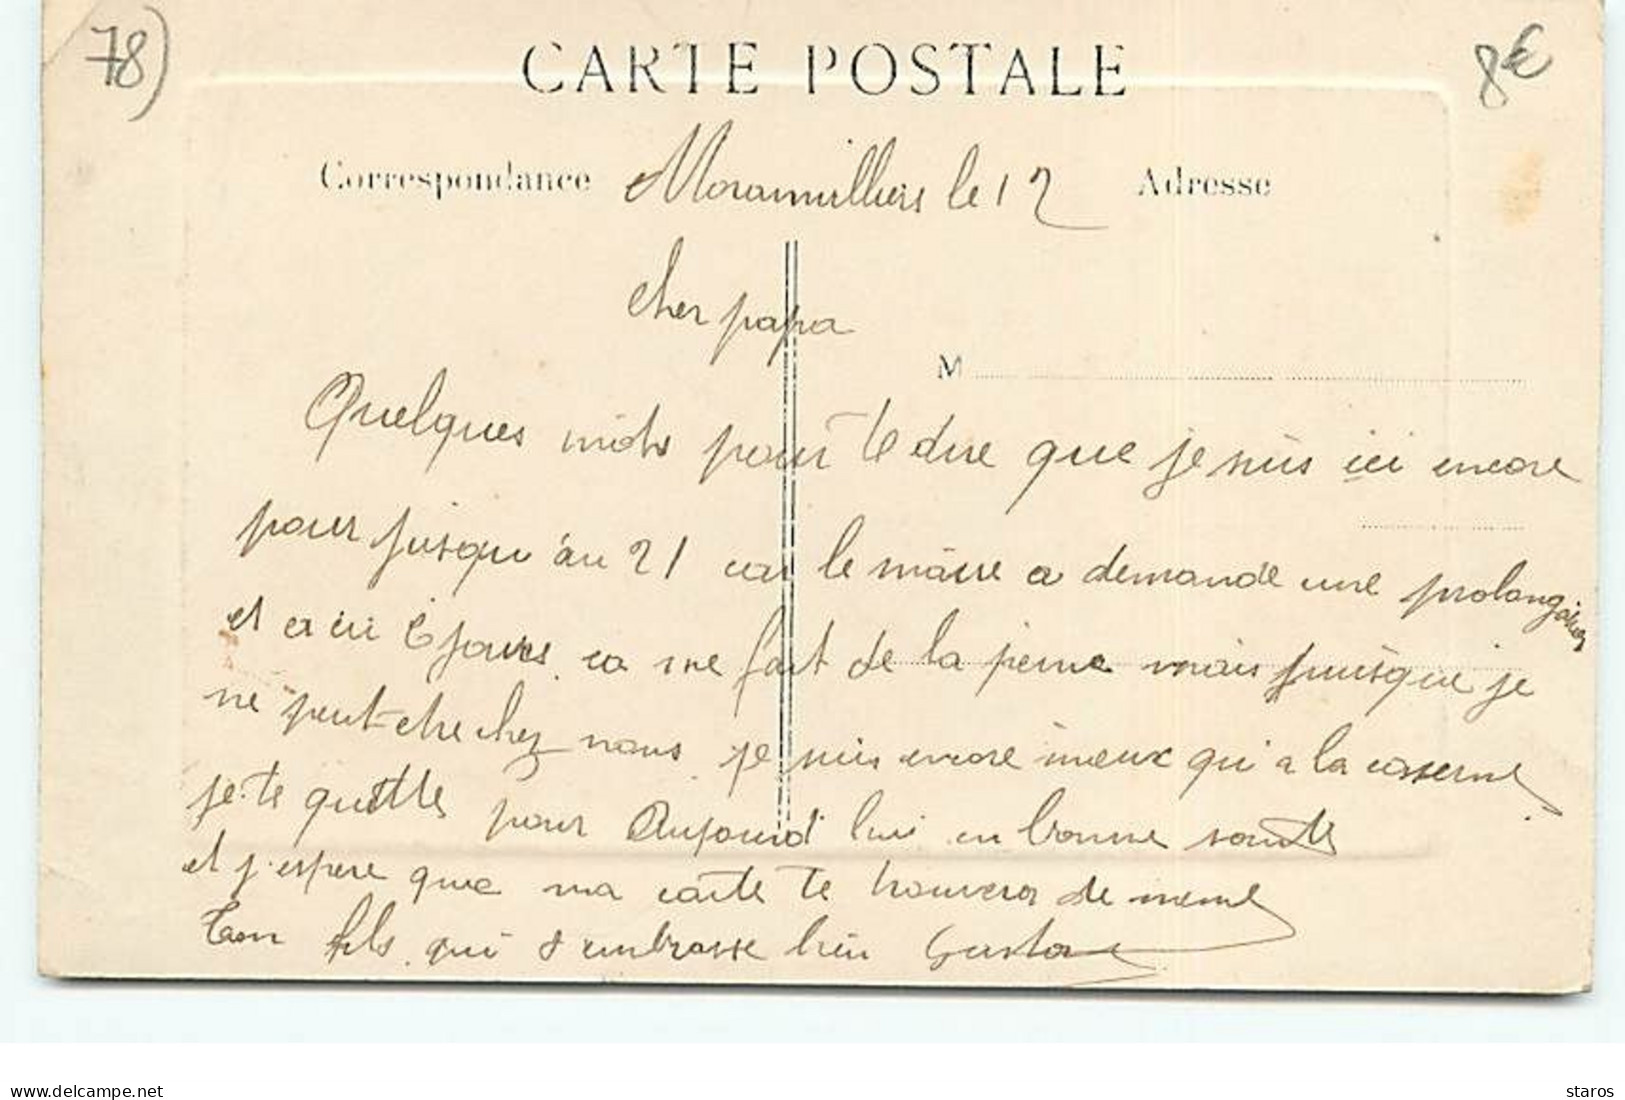 78)
CARTE POSTALE
8€
Correspondance
Morainvilliers le 12
Adresse
Cher papa
M
Quelques mots pour te dire que je suis ici encore
pour jusqu'au 21 car le maire a demande une prolongation
et a eu 6 jours ca me fait de la peine mais puisque je
ne peut etre chez nous je suis encore mieux qui a la caserne
je te quitte pour Aujourd'hui en bonne sante
et j'espere que ma carte te trouvera de meme
Ton fils qui t'embrasse bien Gustave
www.delcampe.net
staros